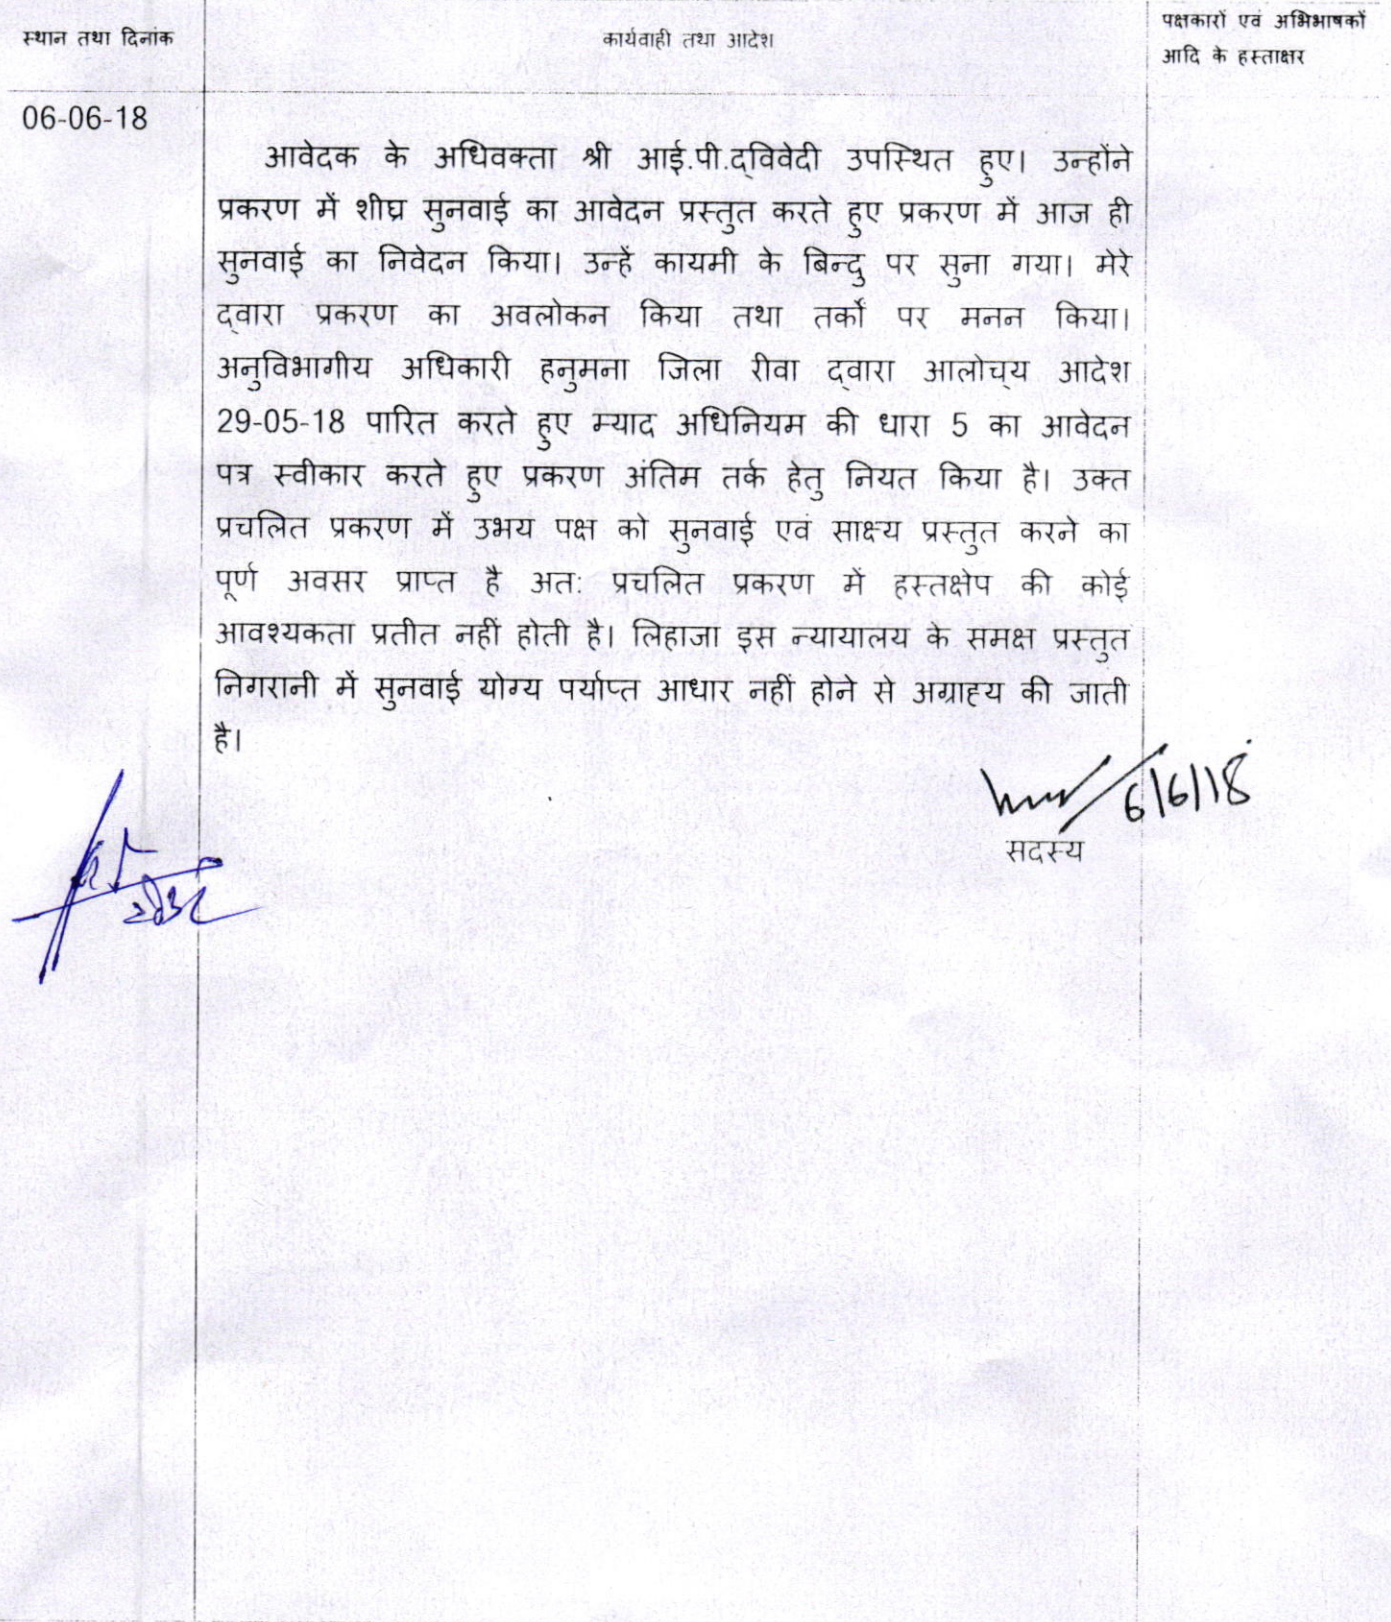 स्थान तथा दिनांक
कार्यवाही तथा आदेश
पक्षकारों एवं अभिभाषकों
आदि के हस्ताक्षर
06-06-18
आवेदक के अधिवक्ता श्री आई.पी.द्विवेदी उपस्थित हुए। उन्होंने
प्रकरण में शीघ्र सुनवाई का आवेदन प्रस्तुत करते हुए प्रकरण में आज ही
सुनवाई का निवेदन किया। उन्हें कायमी के बिन्दु पर सुना गया। मेरे
द्वारा प्रकरण का अवलोकन किया तथा तर्कों पर मनन किया।
अनुविभागीय अधिकारी हनुमना जिला रीवा द्वारा आलोच्य आदेश
29-05-18 पारित करते हुए म्याद अधिनियम की धारा 5 का आवेदन
पत्र स्वीकार करते हुए प्रकरण अंतिम तर्क हेतु नियत किया है। उक्त
प्रचलित प्रकरण में उभय पक्ष को सुनवाई एवं साक्ष्य प्रस्तुत करने का
पूर्ण अवसर प्राप्त है अतः प्रचलित प्रकरण में हस्तक्षेप की कोई
आवश्यकता प्रतीत नहीं होती है। लिहाजा इस न्यायालय के समक्ष प्रस्तुत
निगरानी में सुनवाई योग्य पर्याप्त आधार नहीं होने से अग्राह्य की जाती
है।
6/6/18
सदस्य